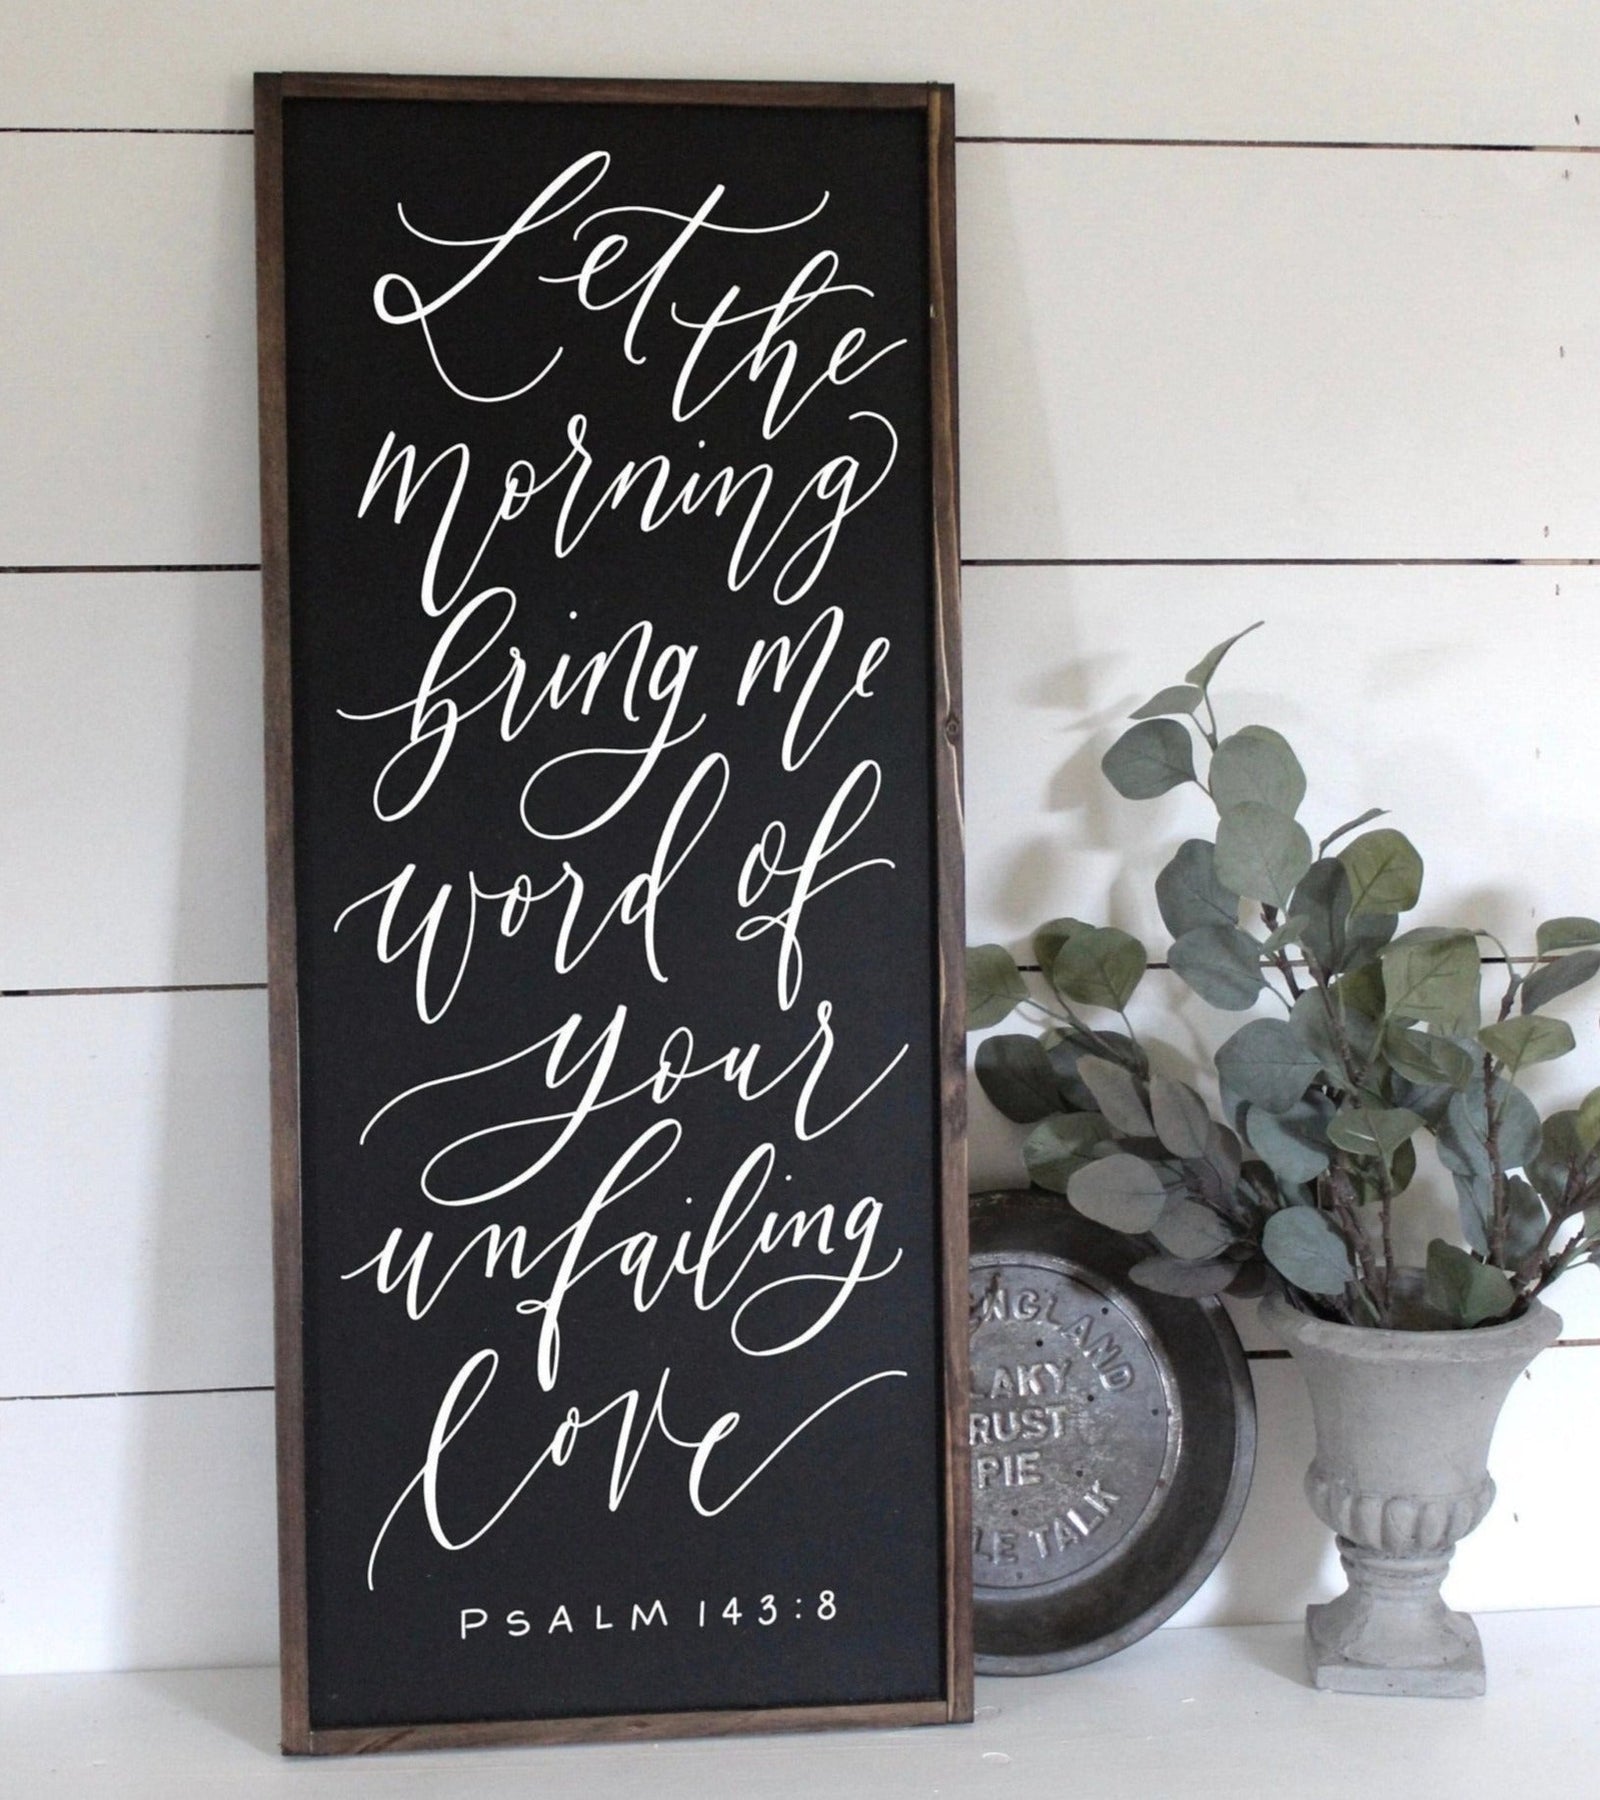 Let the
morning
bring me
word of
your
unfailing
love
PSALM 143:8
ENGLAND
LAKY
RUST
PIE
LE TALK